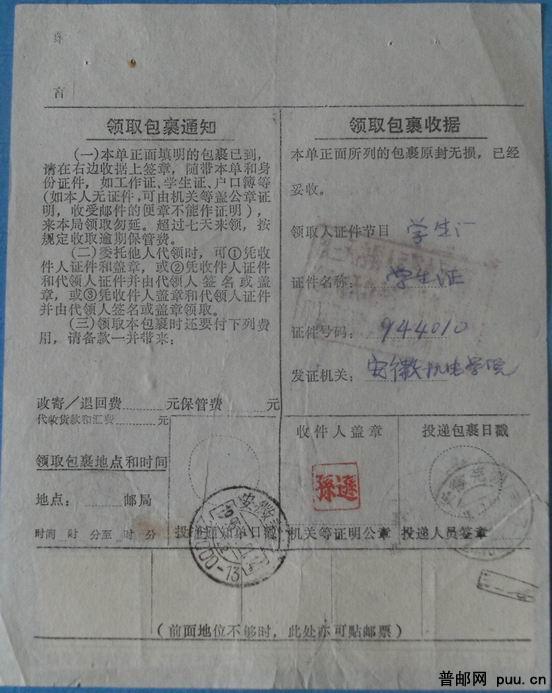 领取包裹通知
(一)本单正面填明的包裹已到,
请在右边收据上签章,随带本单和身
份证件,如工作证、学生证、户口簿等
(如本人无证件,可由机关等盖公章证
明,收受邮件的便章不能作证明),
来本局领取勿延。超过七天来领,按
规定收取逾期保管费。
(二)委托他人代领时,可①凭收
件人证件和盖章,或②凭收件人证件
和代领人证件并由代领人签名或盖
章,或③凭收件人盖章和代领人证件
并由代领人签名或盖章领取。
(三)领取本包裹时还要付下列费
用,请备款一并带来:
改寄/退回费 元保管费 元
代收货款和汇费
领取包裹地点和时间
地点: 邮局
时间 时 分至 时 分
领取包裹收据
本单正面所列的包裹原封无损,已经
妥收。
领取人证件节目 学生证
证件名称: 学生证
证件号码: 944010
发证机关: 安徽机电学院
收件人盖章
投递包裹日戳
孫遜
机关等证明公章
投递人员签章
安徽
(前面地位不够时,此处亦可贴邮票)
普邮网 puu.cn